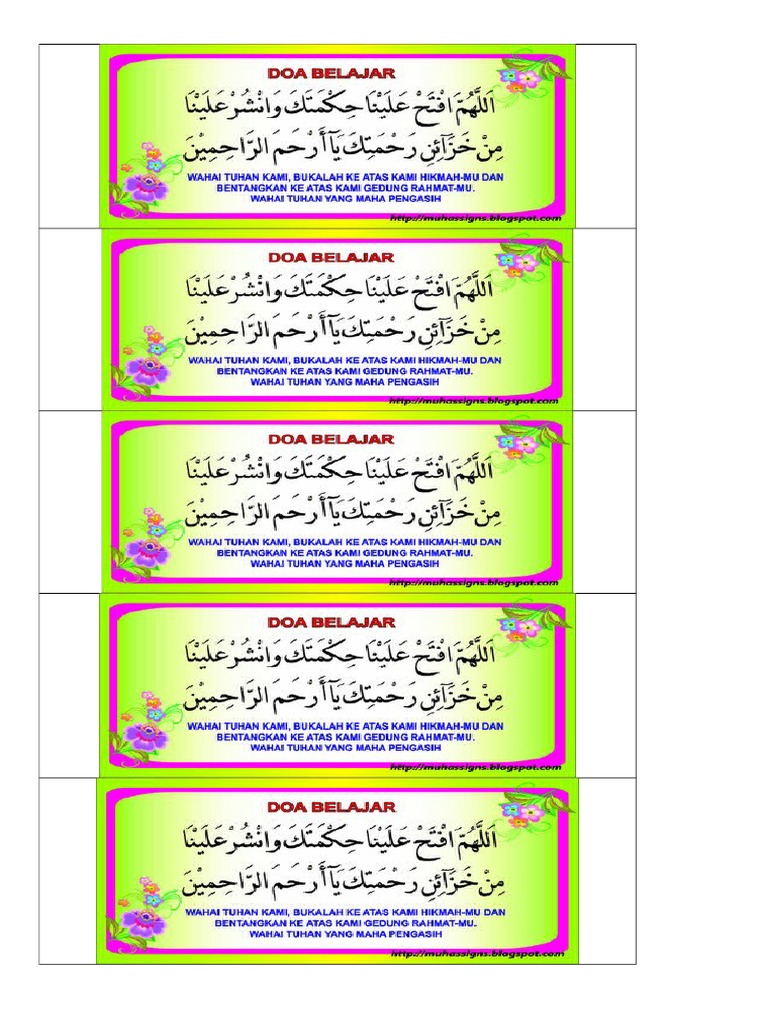 DOA BELAJAR
اَللَّهُمَّ افْتَحْ عَلَيْنَا حِكْمَتَكَ وَانْشُرْ عَلَيْنَا
مِنْ خَزَآئِنِ رَحْمَتِكَ يَآ أَرْحَمَ الرَّاحِمِيْنَ
WAHAI TUHAN KAMI, BUKALAH KE ATAS KAMI HIKMAH-MU DAN
BENTANGKAN KE ATAS KAMI GEDUNG RAHMAT-MU.
WAHAI TUHAN YANG MAHA PENGASIH
http://muhassigns.blogspot.com
DOA BELAJAR
اَللَّهُمَّ افْتَحْ عَلَيْنَا حِكْمَتَكَ وَانْشُرْ عَلَيْنَا
مِنْ خَزَآئِنِ رَحْمَتِكَ يَآ أَرْحَمَ الرَّاحِمِيْنَ
WAHAI TUHAN KAMI, BUKALAH KE ATAS KAMI HIKMAH-MU DAN
BENTANGKAN KE ATAS KAMI GEDUNG RAHMAT-MU.
WAHAI TUHAN YANG MAHA PENGASIH
http://muhassigns.blogspot.com
DOA BELAJAR
اَللَّهُمَّ افْتَحْ عَلَيْنَا حِكْمَتَكَ وَانْشُرْ عَلَيْنَا
مِنْ خَزَآئِنِ رَحْمَتِكَ يَآ أَرْحَمَ الرَّاحِمِيْنَ
WAHAI TUHAN KAMI, BUKALAH KE ATAS KAMI HIKMAH-MU DAN
BENTANGKAN KE ATAS KAMI GEDUNG RAHMAT-MU.
WAHAI TUHAN YANG MAHA PENGASIH
http://muhassigns.blogspot.com
DOA BELAJAR
اَللَّهُمَّ افْتَحْ عَلَيْنَا حِكْمَتَكَ وَانْشُرْ عَلَيْنَا
مِنْ خَزَآئِنِ رَحْمَتِكَ يَآ أَرْحَمَ الرَّاحِمِيْنَ
WAHAI TUHAN KAMI, BUKALAH KE ATAS KAMI HIKMAH-MU DAN
BENTANGKAN KE ATAS KAMI GEDUNG RAHMAT-MU.
WAHAI TUHAN YANG MAHA PENGASIH
http://muhassigns.blogspot.com
DOA BELAJAR
اَللَّهُمَّ افْتَحْ عَلَيْنَا حِكْمَتَكَ وَانْشُرْ عَلَيْنَا
مِنْ خَزَآئِنِ رَحْمَتِكَ يَآ أَرْحَمَ الرَّاحِمِيْنَ
WAHAI TUHAN KAMI, BUKALAH KE ATAS KAMI HIKMAH-MU DAN
BENTANGKAN KE ATAS KAMI GEDUNG RAHMAT-MU.
WAHAI TUHAN YANG MAHA PENGASIH
http://muhassigns.blogspot.com